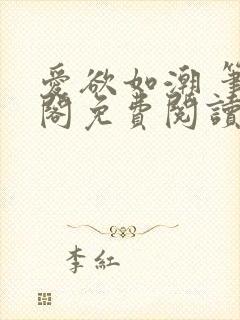 愛欲如潮 筆
閣免費閱讀
李紅